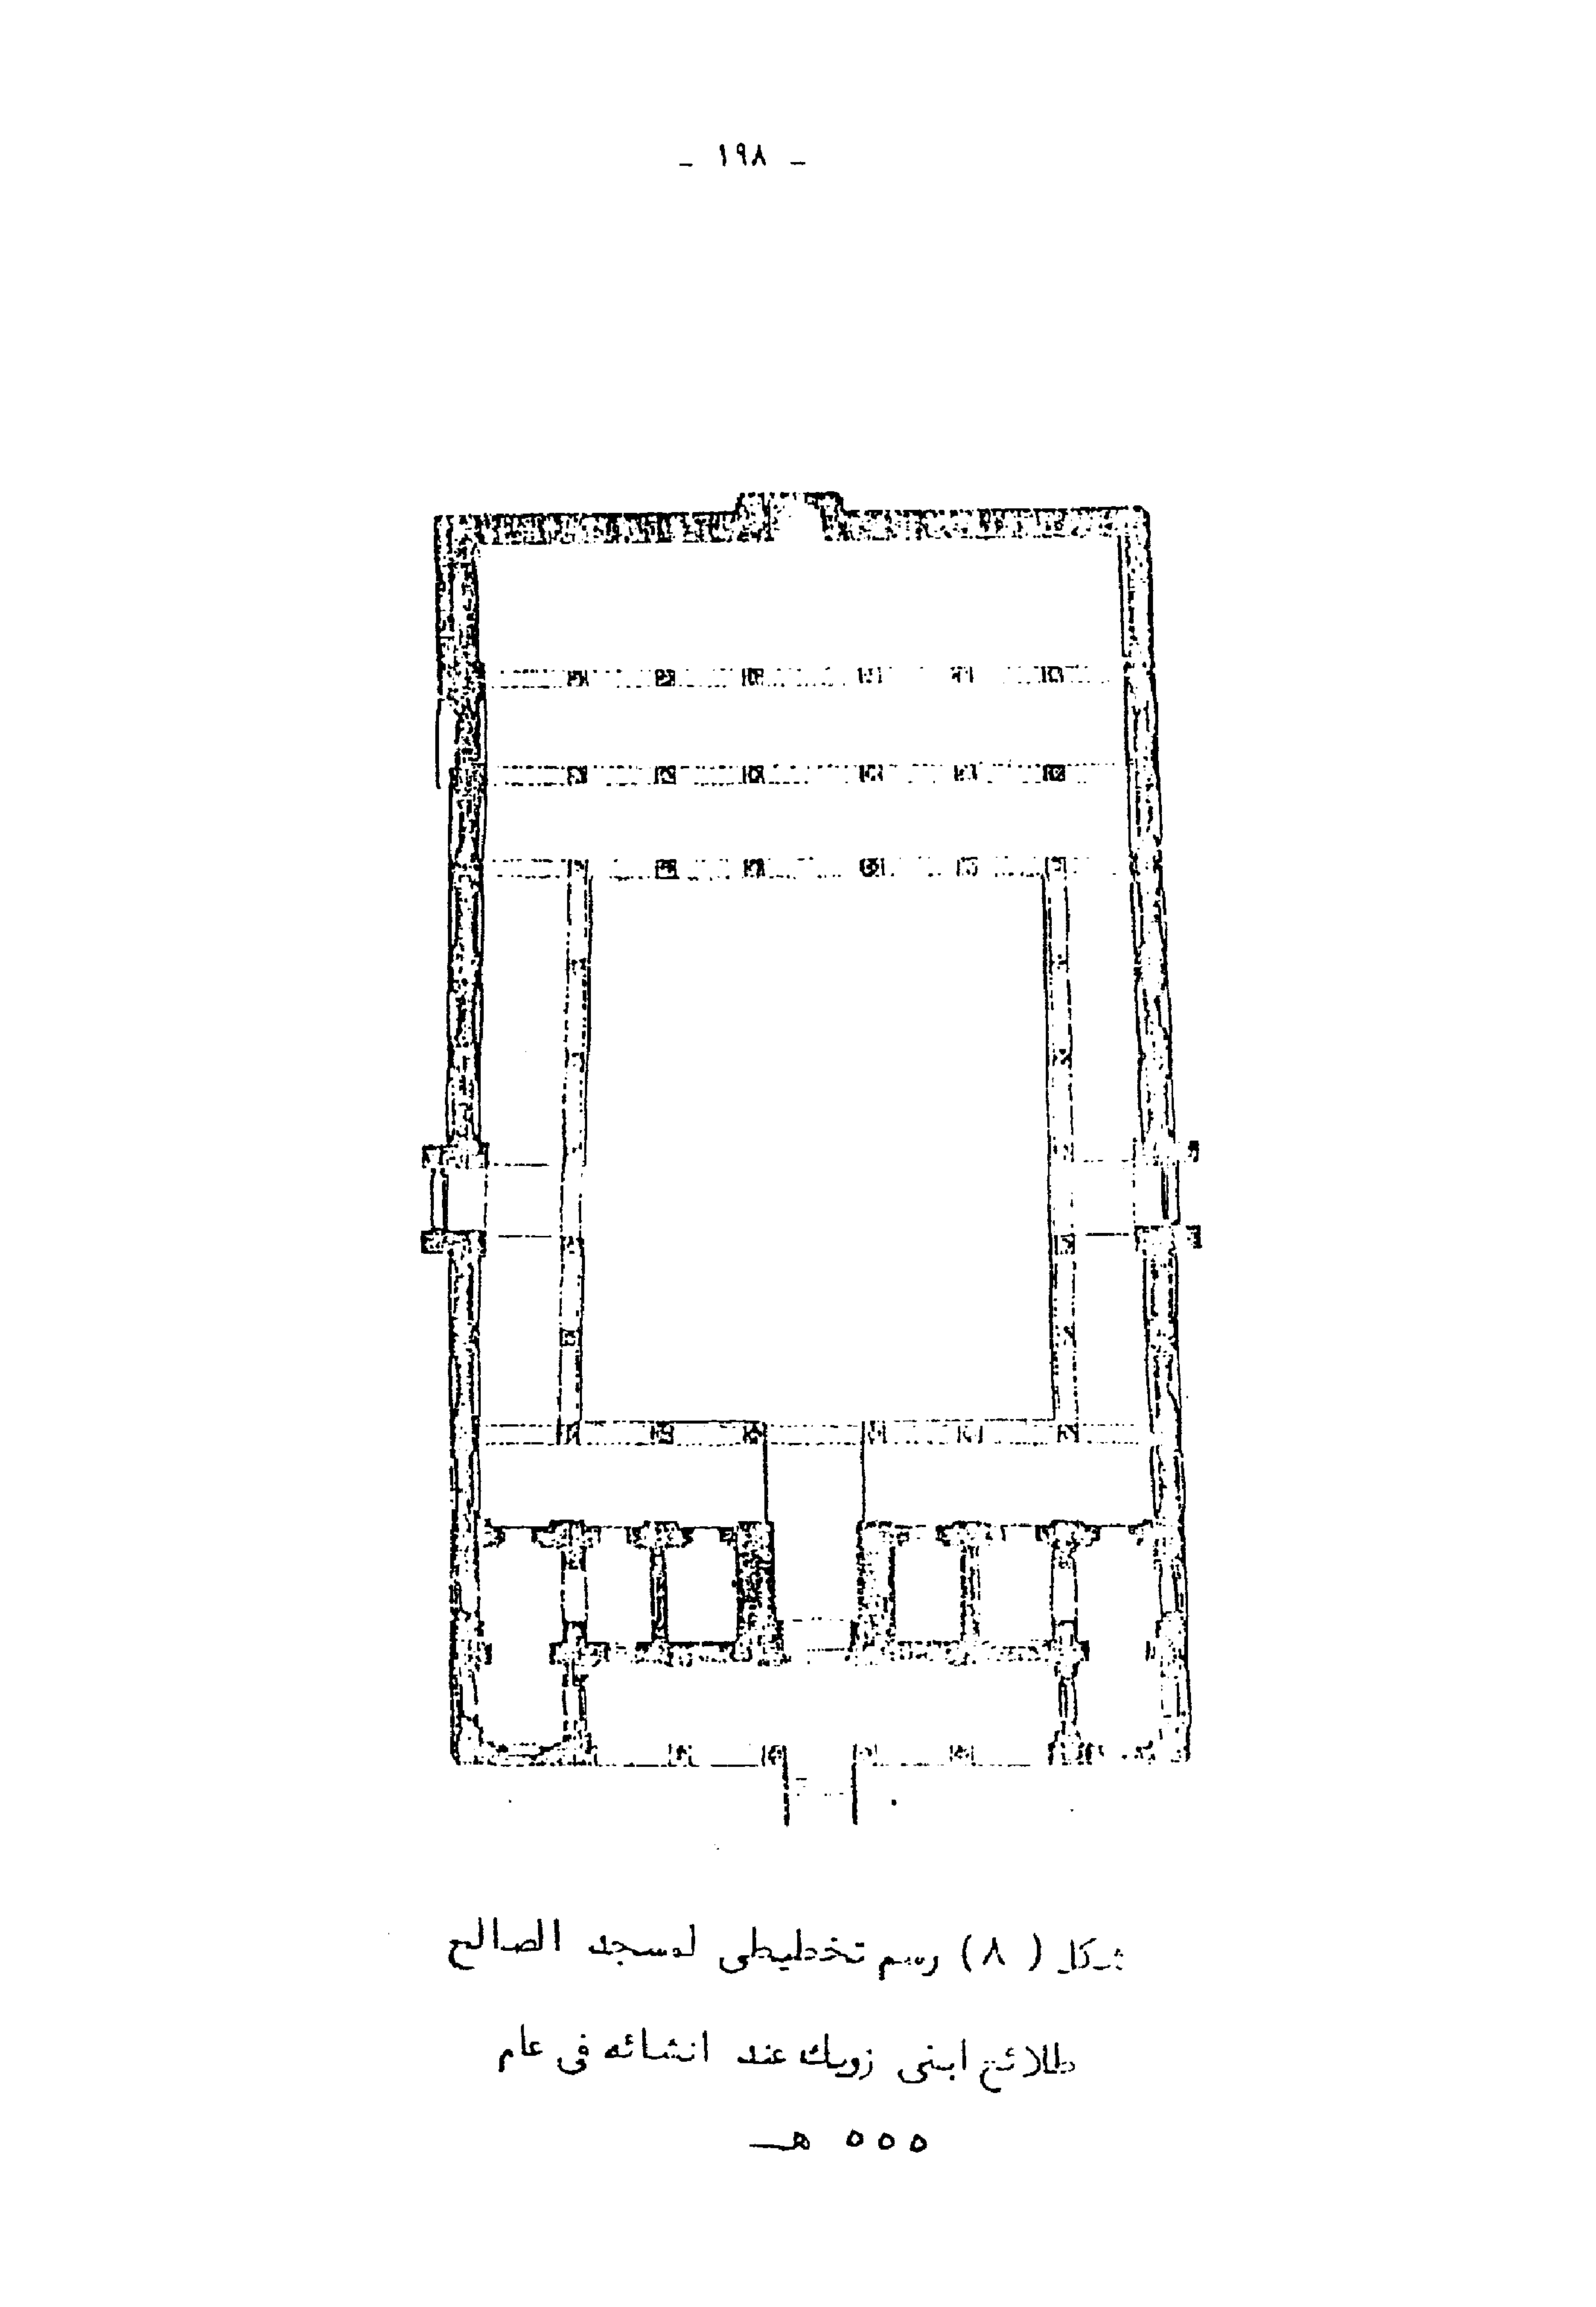 - ١٩٨ -
شكل ( ٨ ) رسم تخطيطى لمسجد الصالح
طلائع ابنى زويك عند انشائه فى عام
٥٥٥ هـ